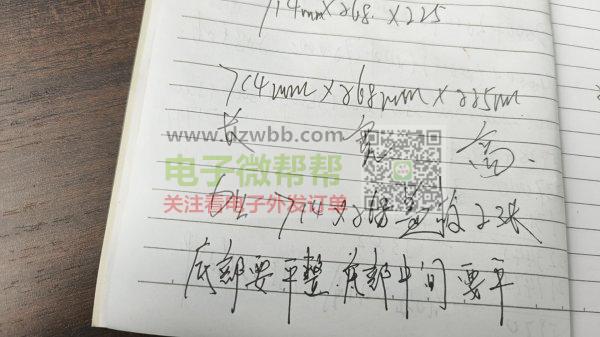 714mm×268.×225
714mm×268mm×225m
长 宽 高.
www.dzwbb.com
电子微帮帮
714×268盖板23张
关注看电子外发订单
底部要平整.底部中间要平